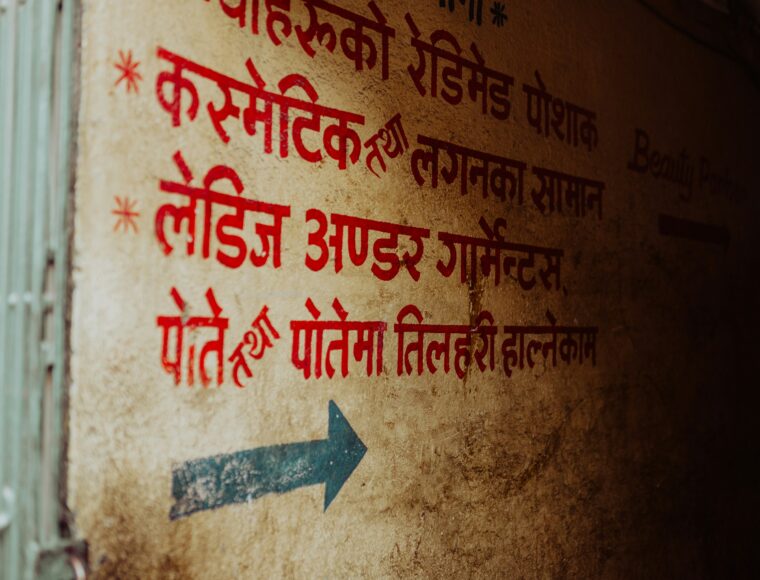 रेडिमेड पोशाक
* कस्मेटिक तथा लगनका सामान
* लेडिज अण्डर गार्मेन्टस्
पोते तथा पोतेमा तिलहरी हाल्नेकाम
Beauty